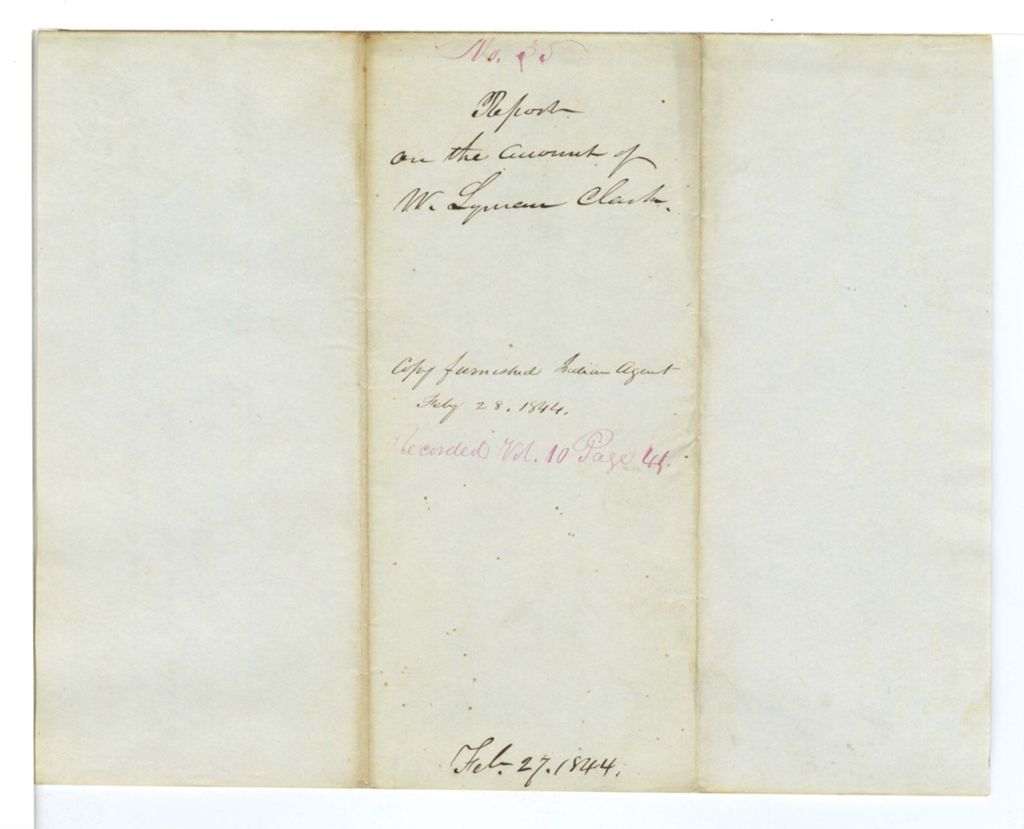 No. 35
Report
on the account of
W. Lyman Clark.
Copy furnished Indian Agent
Feby 28. 1844.
Recorded Vol. 10 Page 41.
Feb. 27. 1844.